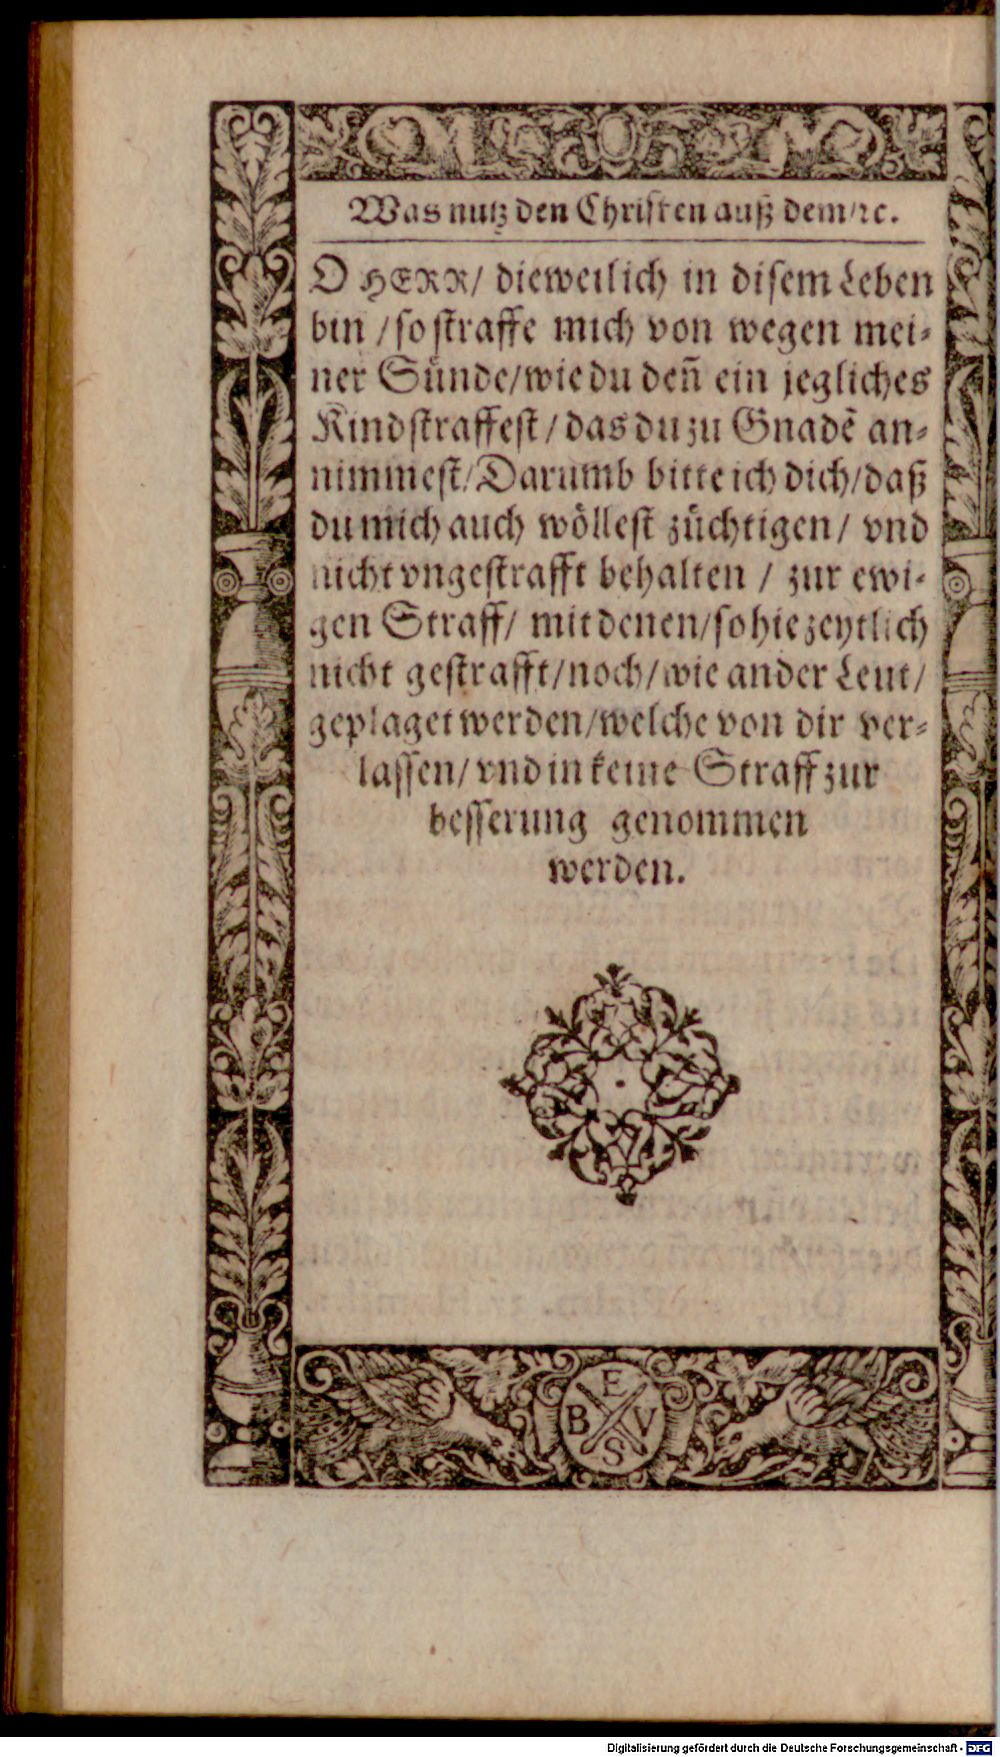 Was nutz den Christen auß dem/ꝛc.
O HERR/ dieweil ich in disem Leben
bin / so straffe mich von wegen mei-
ner Sünde/wie du deñ ein jegliches
Kind straffest / das du zu Gnadẽ an-
nimmest/ Darumb bitte ich dich/daß
du mich auch wöllest züchtigen/ vnd
nicht vngestrafft behalten / zur ewi-
gen Straff/ mit denen/so hie zeytlich
nicht gestrafft/noch/wie ander Leut/
geplaget werden/welche von dir ver-
lassen/ vnd in keine Straff zur
besserung genommen
werden.
E
B V
S
Digitalisierung gefördert durch die Deutsche Forschungsgemeinschaft - DFG